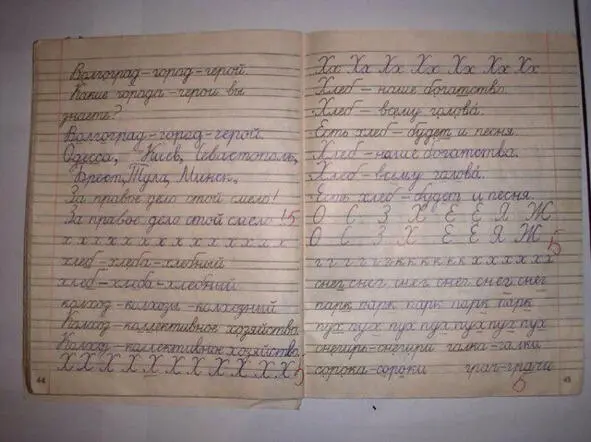 Волгоград-город-герой.
Какие города-герои вы
знаете?
Волгоград-город-герой.
Одесса, Киев, Севастополь,
Брест, Тула, Минск.
За правое дело стой смело!
За правое дело стой смело! 5
х х х х х х х х х х х х х
хлеб-хлеба-хлебный
хлеб-хлеба-хлебный
колхоз-колхозы-колхозный
Колхоз-коллективное хозяйство
Колхоз-коллективное хозяйство.
Х Х Х Х Х Х Х Х Х Х Х 5
44
Хх Хх Хх Хх Хх Хх Хх
Хлеб-наше богатство.
Хлеб-всему голова.
Есть хлеб-будет и песня.
Хлеб-наше богатство.
Хлеб-всему голова.
Есть хлеб-будет и песня.
О С З Х Е Ё Я Ж
О С З Х Е Ё Я Ж 5
г г г г г г к к к к к к х х х х х х
снег снег снег снег снег снег
парк парк парк парк парк
пух пух пух пух пух пух пух
снегирь-снегири галка-галки
сорока-сороки грач-грачи
5
45